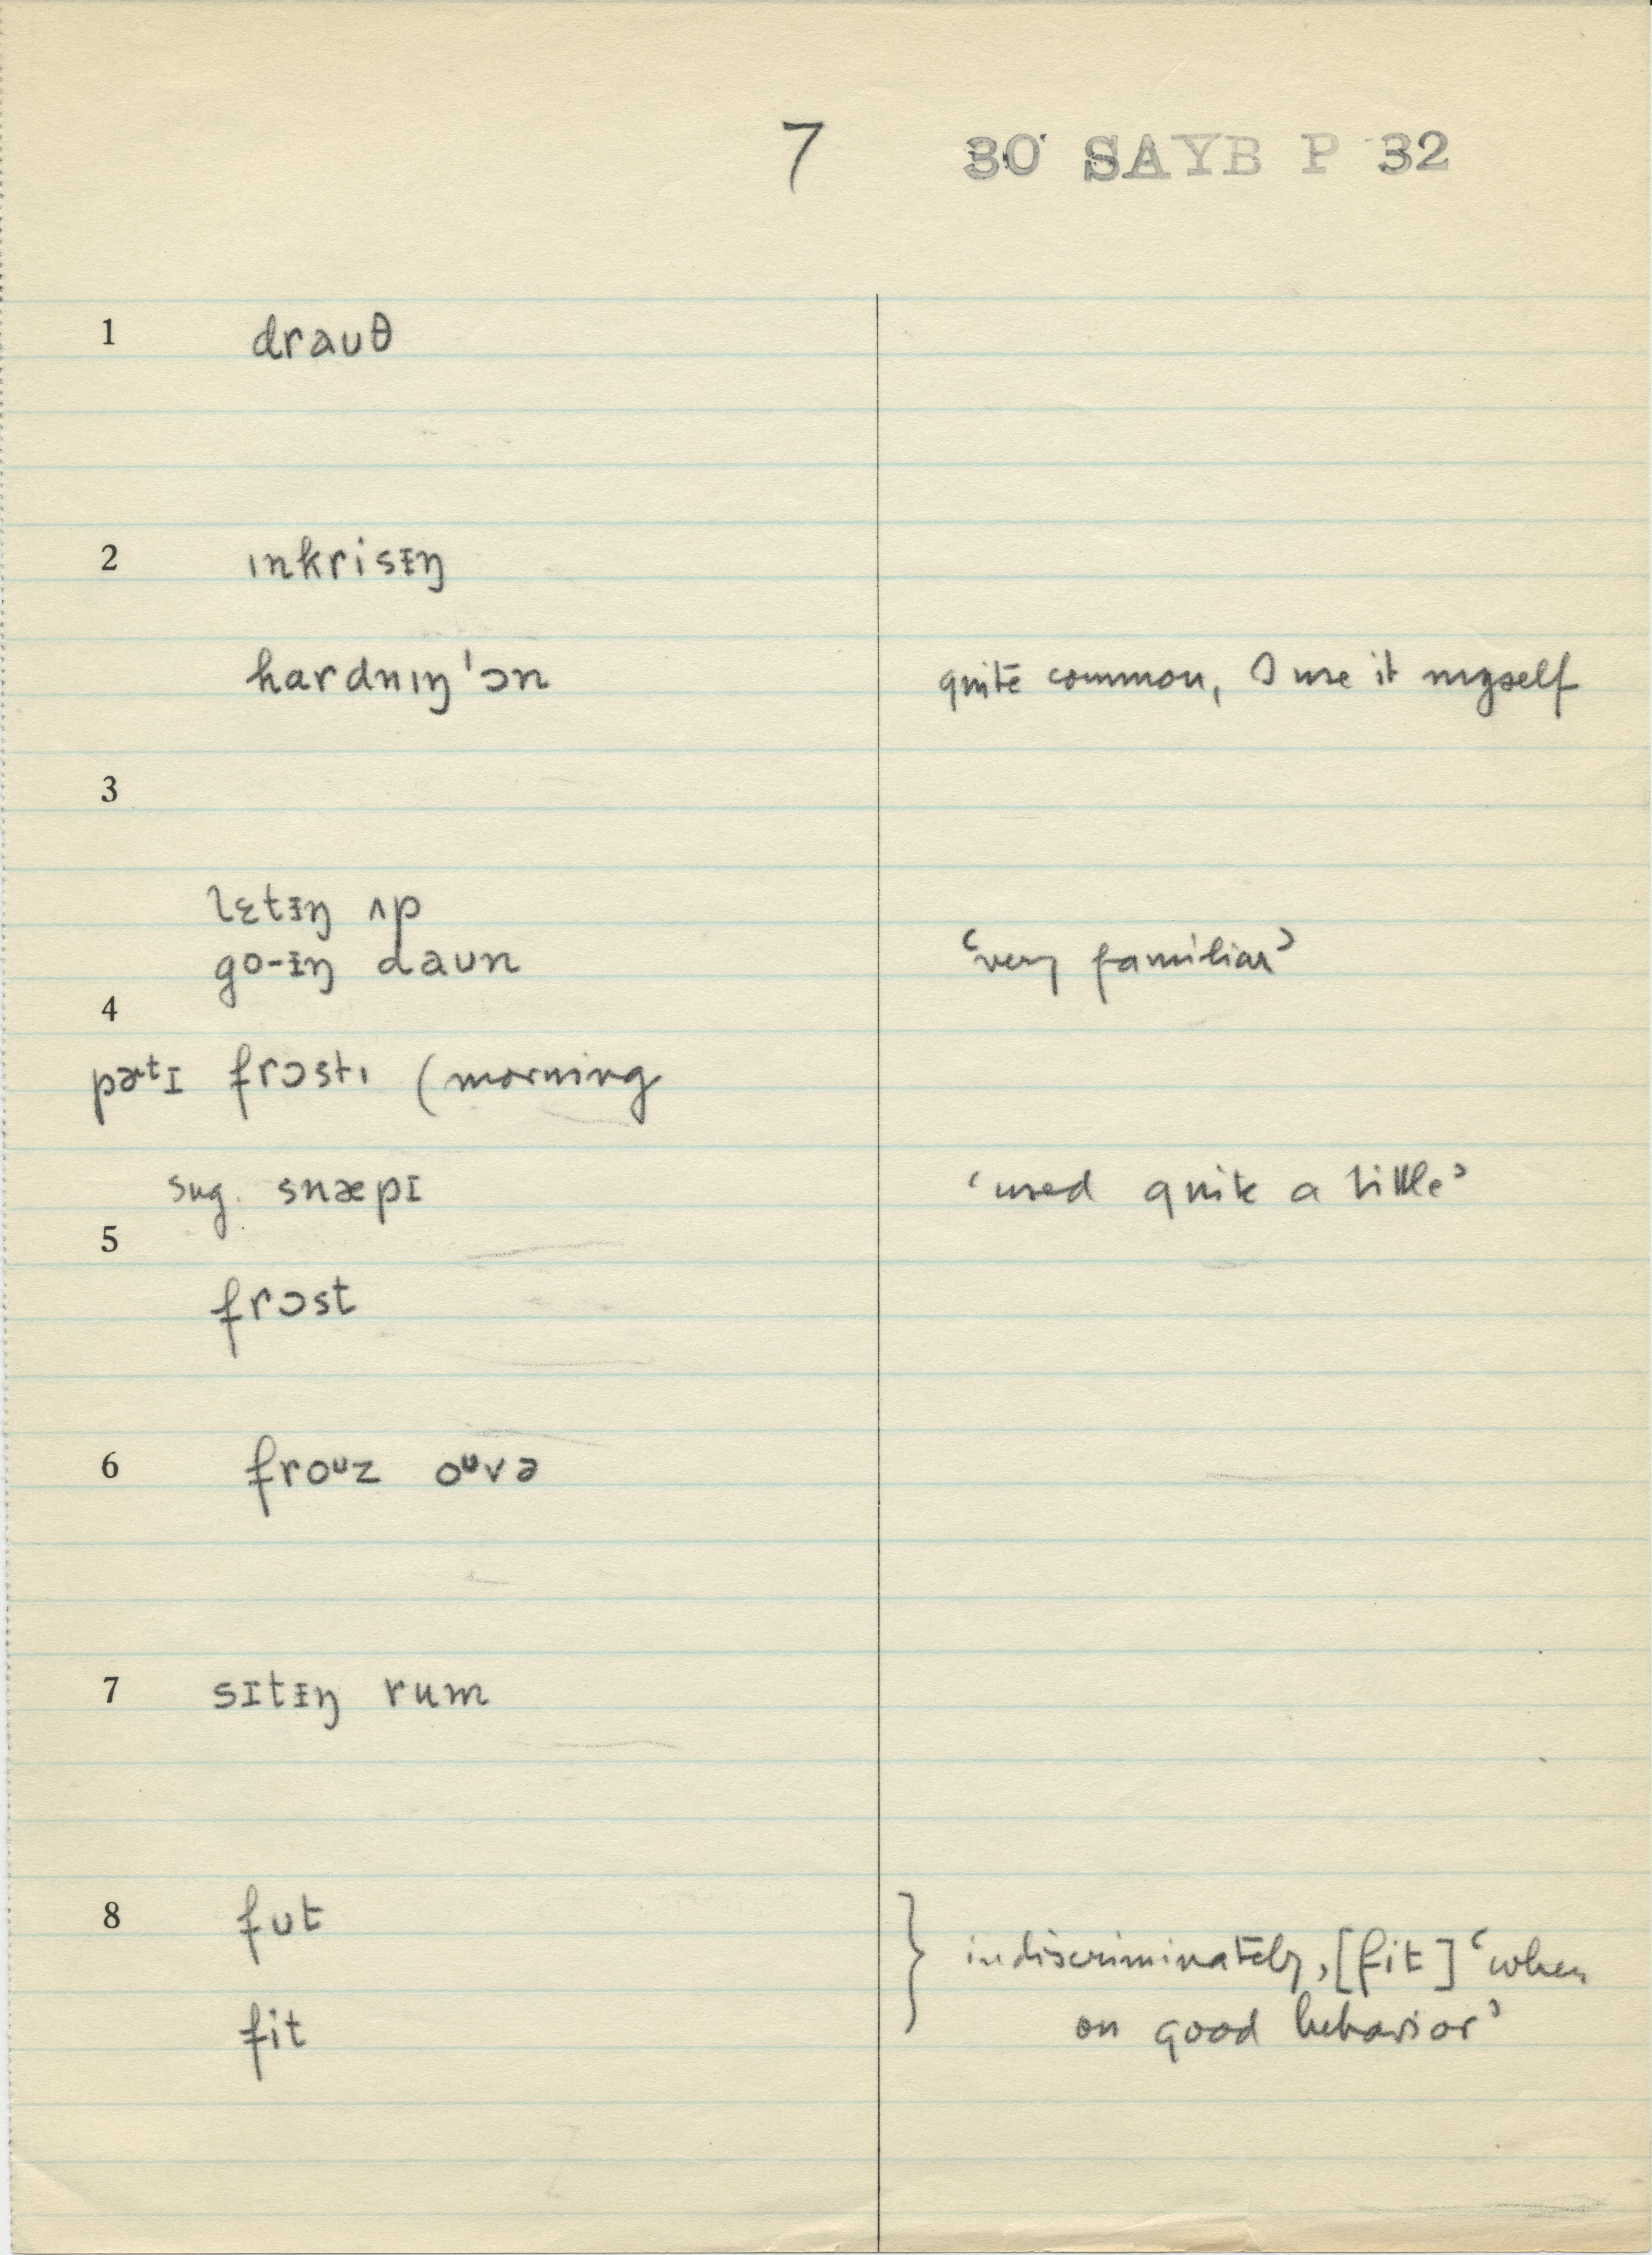 7 30 SAYB P 32
1 drauθ
2 ɪnkrisᵻŋ
hardnɪŋ'ɔn quite common, I use it myself
3
lɛtᵻŋ ʌp
go-ᵻŋ daʊn 'very familiar'
4
pɚtɪ frɔstɪ (morning
sug. snæpɪ 'used quite a little'
5
frɔst
6 froᶷz oᶷvə
7 sɪtᵻŋ rum
8 fʊt
} indiscriminately, [fit] 'when
fit on good behavior'